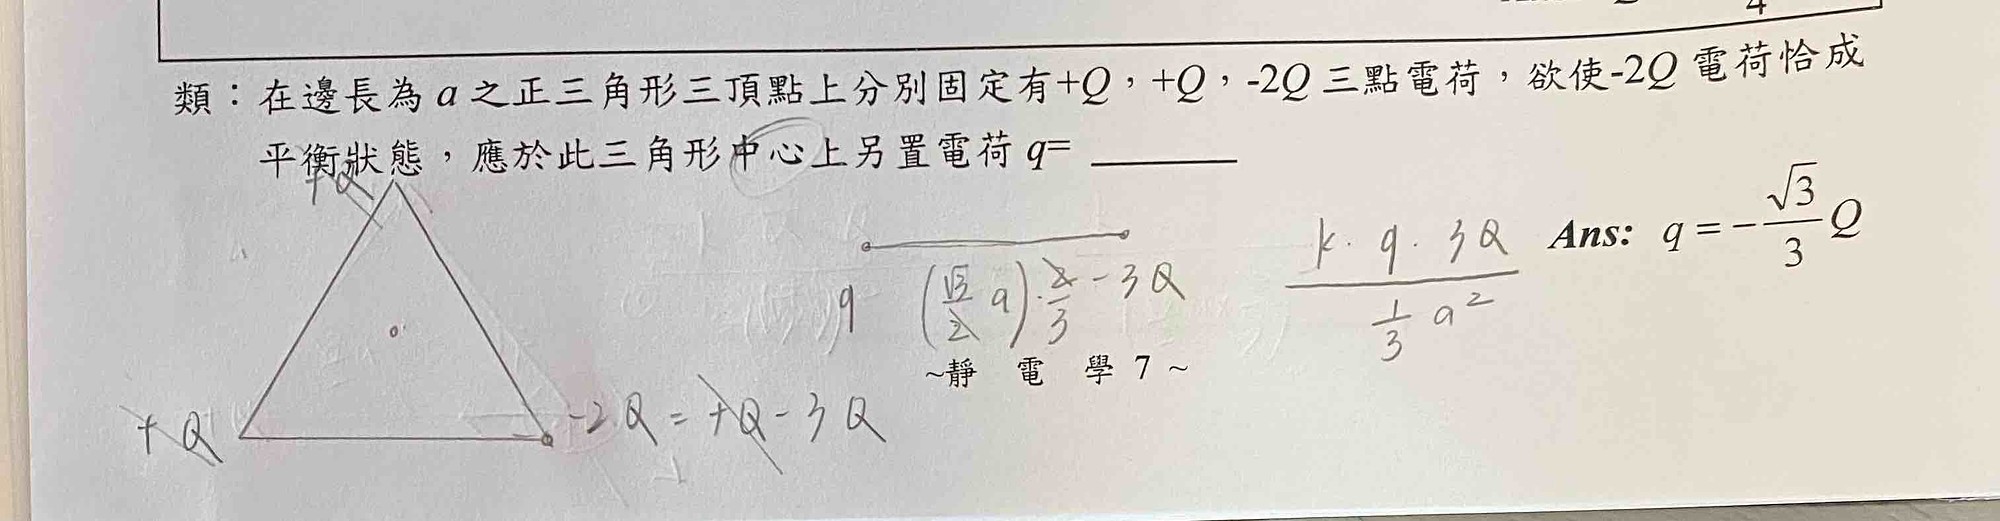 類：在邊長為 a 之正三角形三頂點上分別固定有+Q，+Q，-2Q 三點電荷，欲使-2Q 電荷恰成
平衡狀態，應於此三角形中心上另置電荷 q= ______
Ans: q = -√3/3 Q
+Q
k · q · 3Q / (1/3 a²)
q (√3/2 a) · 2/3 -3Q
~靜 電 學 7 ~
+Q
-2Q = +Q - 3Q